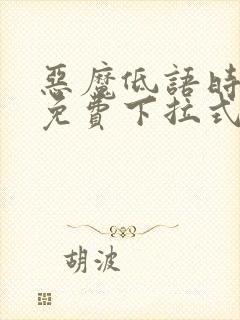 惡魔低語時
免費下拉式
胡波